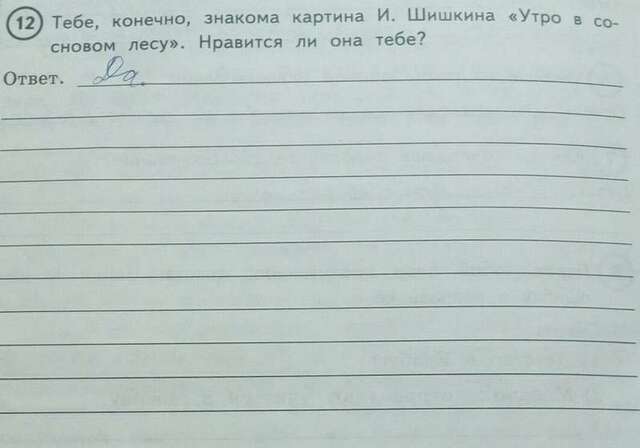 12 Тебе, конечно, знакома картина И. Шишкина «Утро в со-
сновом лесу». Нравится ли она тебе?
Ответ. Да.